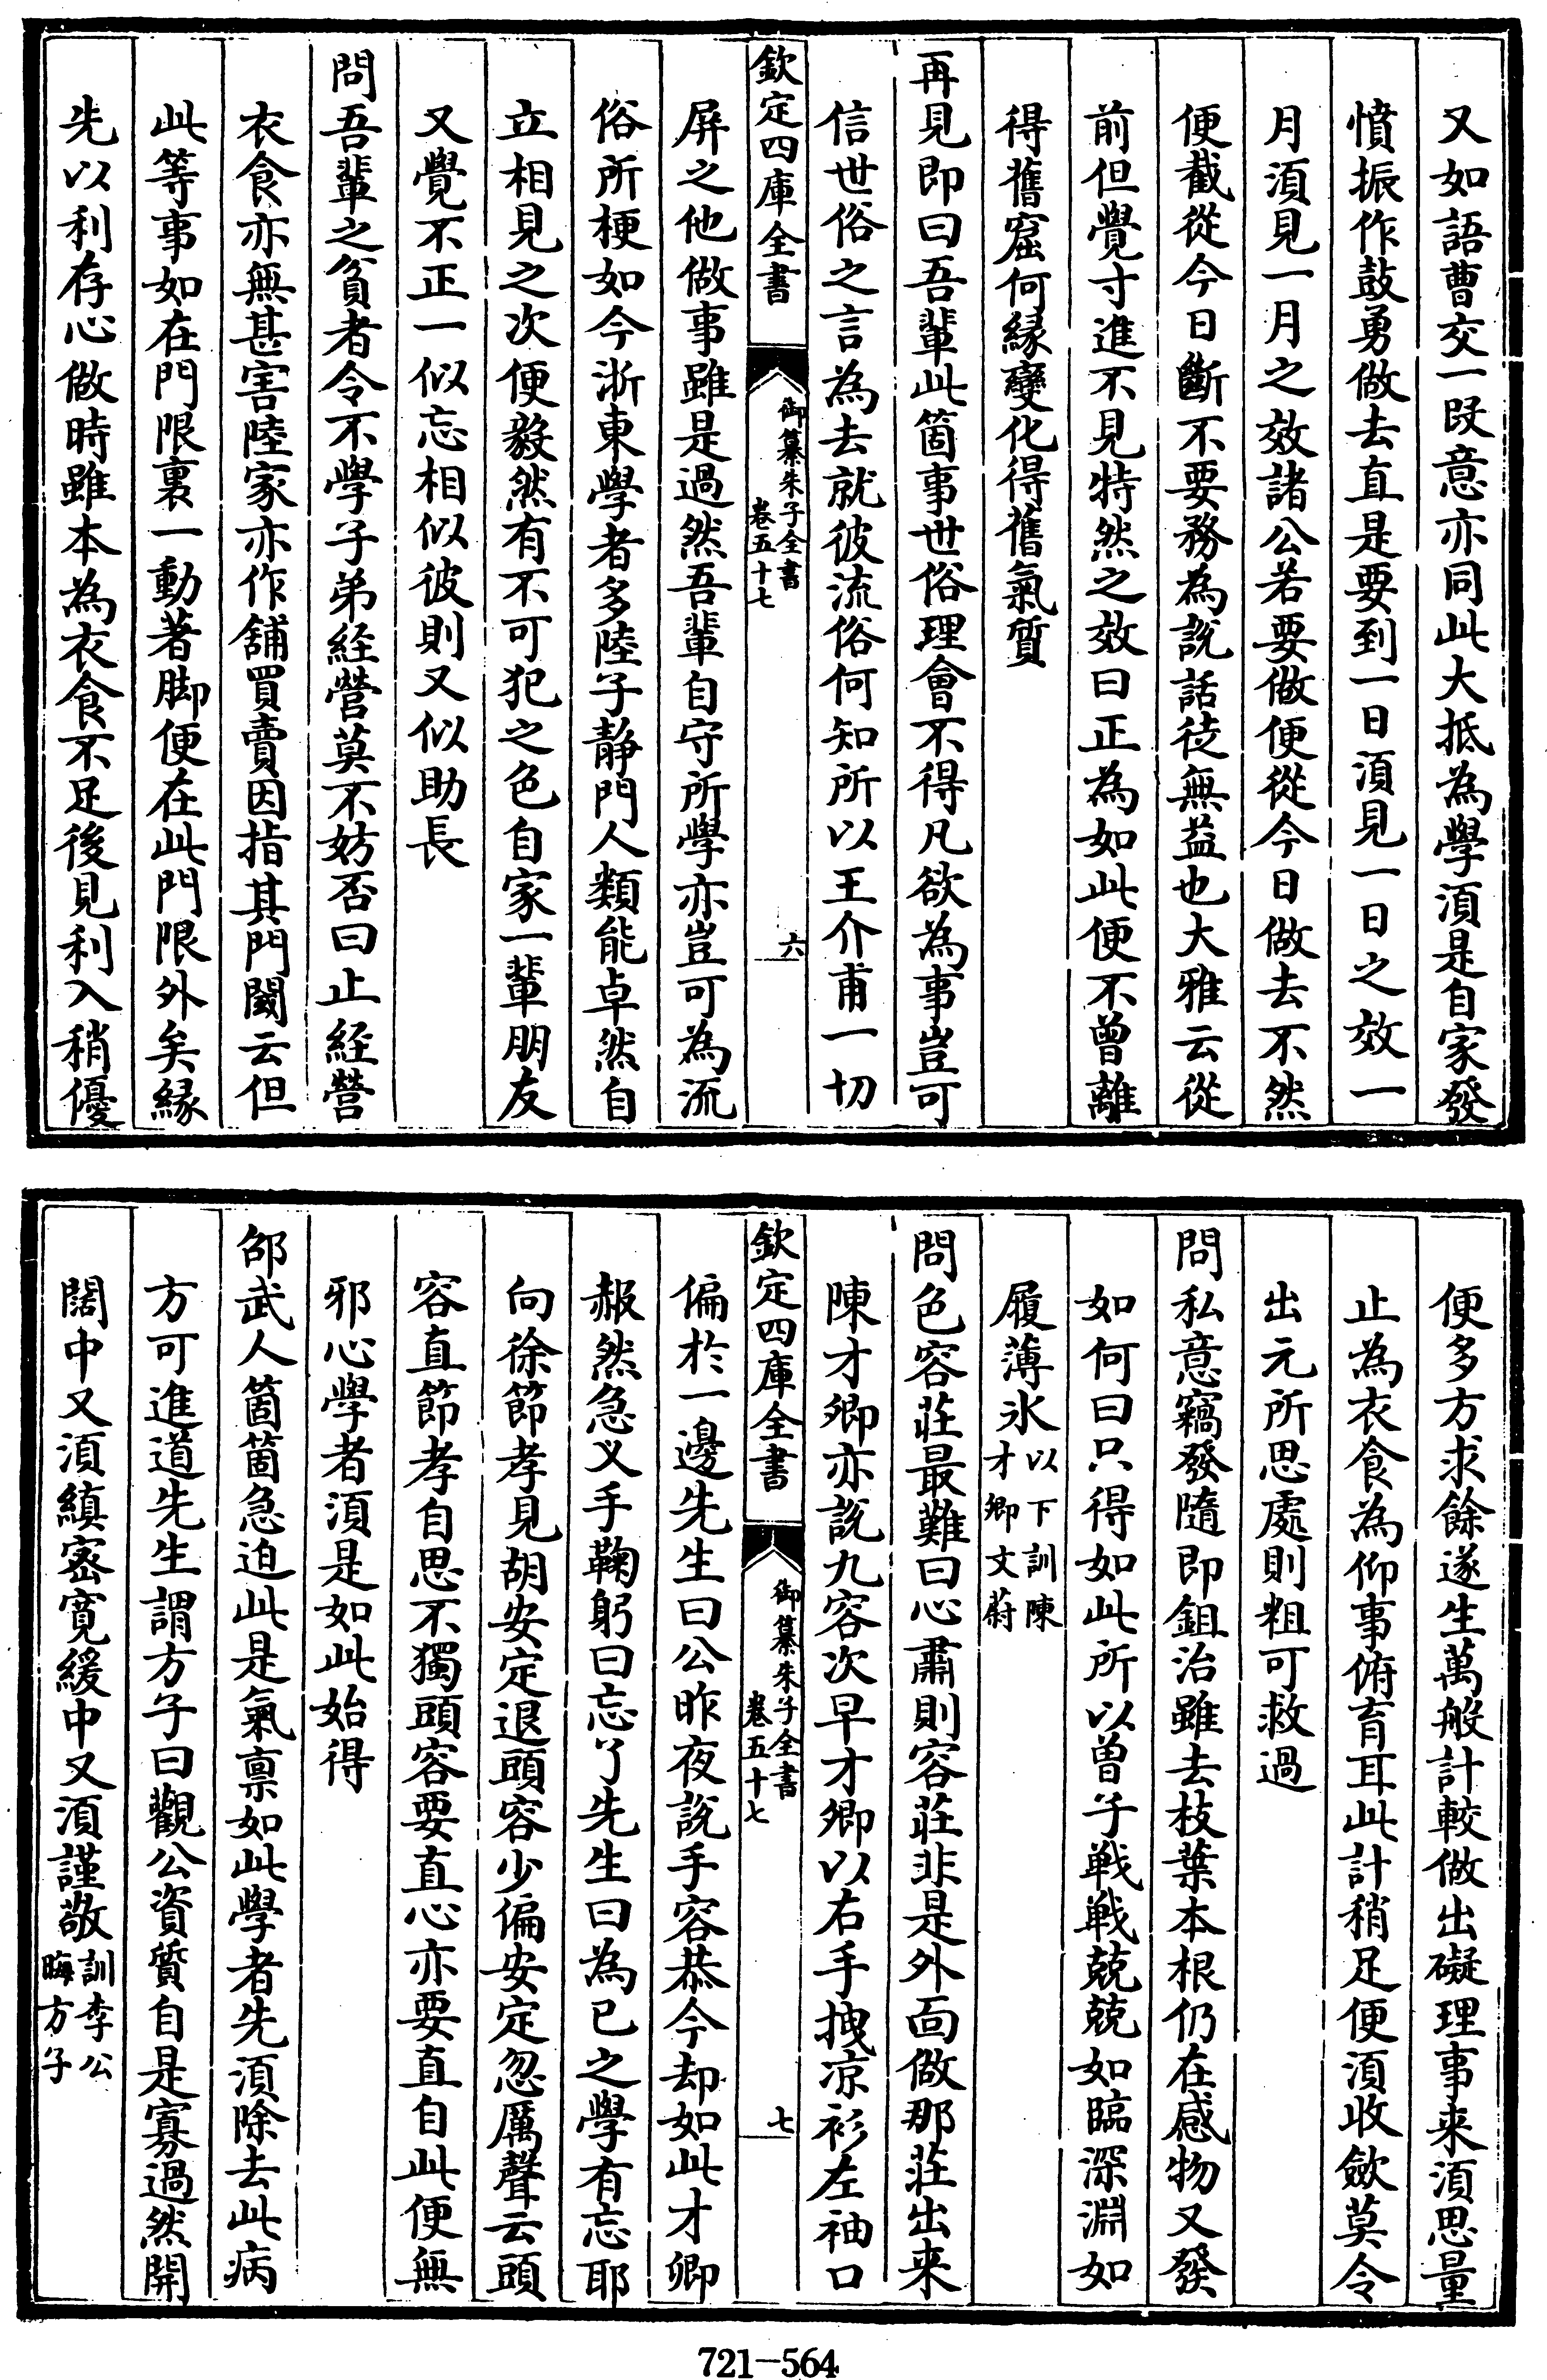 又如語曹交一段意亦同此大抵為學湏是自家發
憤振作鼓勇做去直是要到一日湏見一日之效一
月湏見一月之效諸公若要做便從今日做去不然
便截從今日斷不要務為說話徒無益也大雅云從
前但覺寸進不見特然之效曰正為如此便不曾離
得舊窟何緣變化得舊氣質
再見即曰吾輩此箇事世俗理會不得凡欲為事豈可
信世俗之言為去就彼流俗何知所以王介甫一切
欽定四庫全書
御纂朱子全書
卷五十七
六
屏之他做事雖是過然吾輩自守所學亦豈可為流
俗所梗如今浙東學者多陸子靜門人類能卓然自
立相見之次便毅然有不可犯之色自家一輩朋友
又覺不正一似忘相似彼則又似助長
問吾輩之貧者令不學子弟經營莫不妨否曰止經營
衣食亦無甚害陸家亦作舖買賣因指其門閾云但
此等事如在門限裏一動著脚便在此門限外矣緣
先以利存心做時雖本為衣食不足後見利入稍優
便多方求餘遂生萬般計較做出礙理事来湏思量
止為衣食為仰事俯育耳此計稍足便湏收歛莫令
出元所思處則粗可救過
問私意竊發隨即鉏治雖去枝葉本根仍在感物又發
如何曰只得如此所以曾子戰戰兢兢如臨深淵如
履薄氷以下訓陳
才卿文蔚
問色容莊最難曰心肅則容莊非是外面做那莊出来
陳才卿亦說九容次早才卿以右手拽凉衫左袖口
欽定四庫全書
御纂朱子全書
卷五十七
七
偏於一邊先生曰公昨夜說手容恭今却如此才卿
赧然急义手鞠躬曰忘了先生曰為已之學有忘耶
向徐節孝見胡安定退頭容少偏安定忽厲聲云頭
容直節孝自思不獨頭容要直心亦要直自此便無
邪心學者湏是如此始得
邵武人箇箇急迫此是氣禀如此學者先湏除去此病
方可進道先生謂方子曰觀公資質自是寡過然開
闊中又湏縝宻寛緩中又湏謹敬訓李公
晦方子
721-564